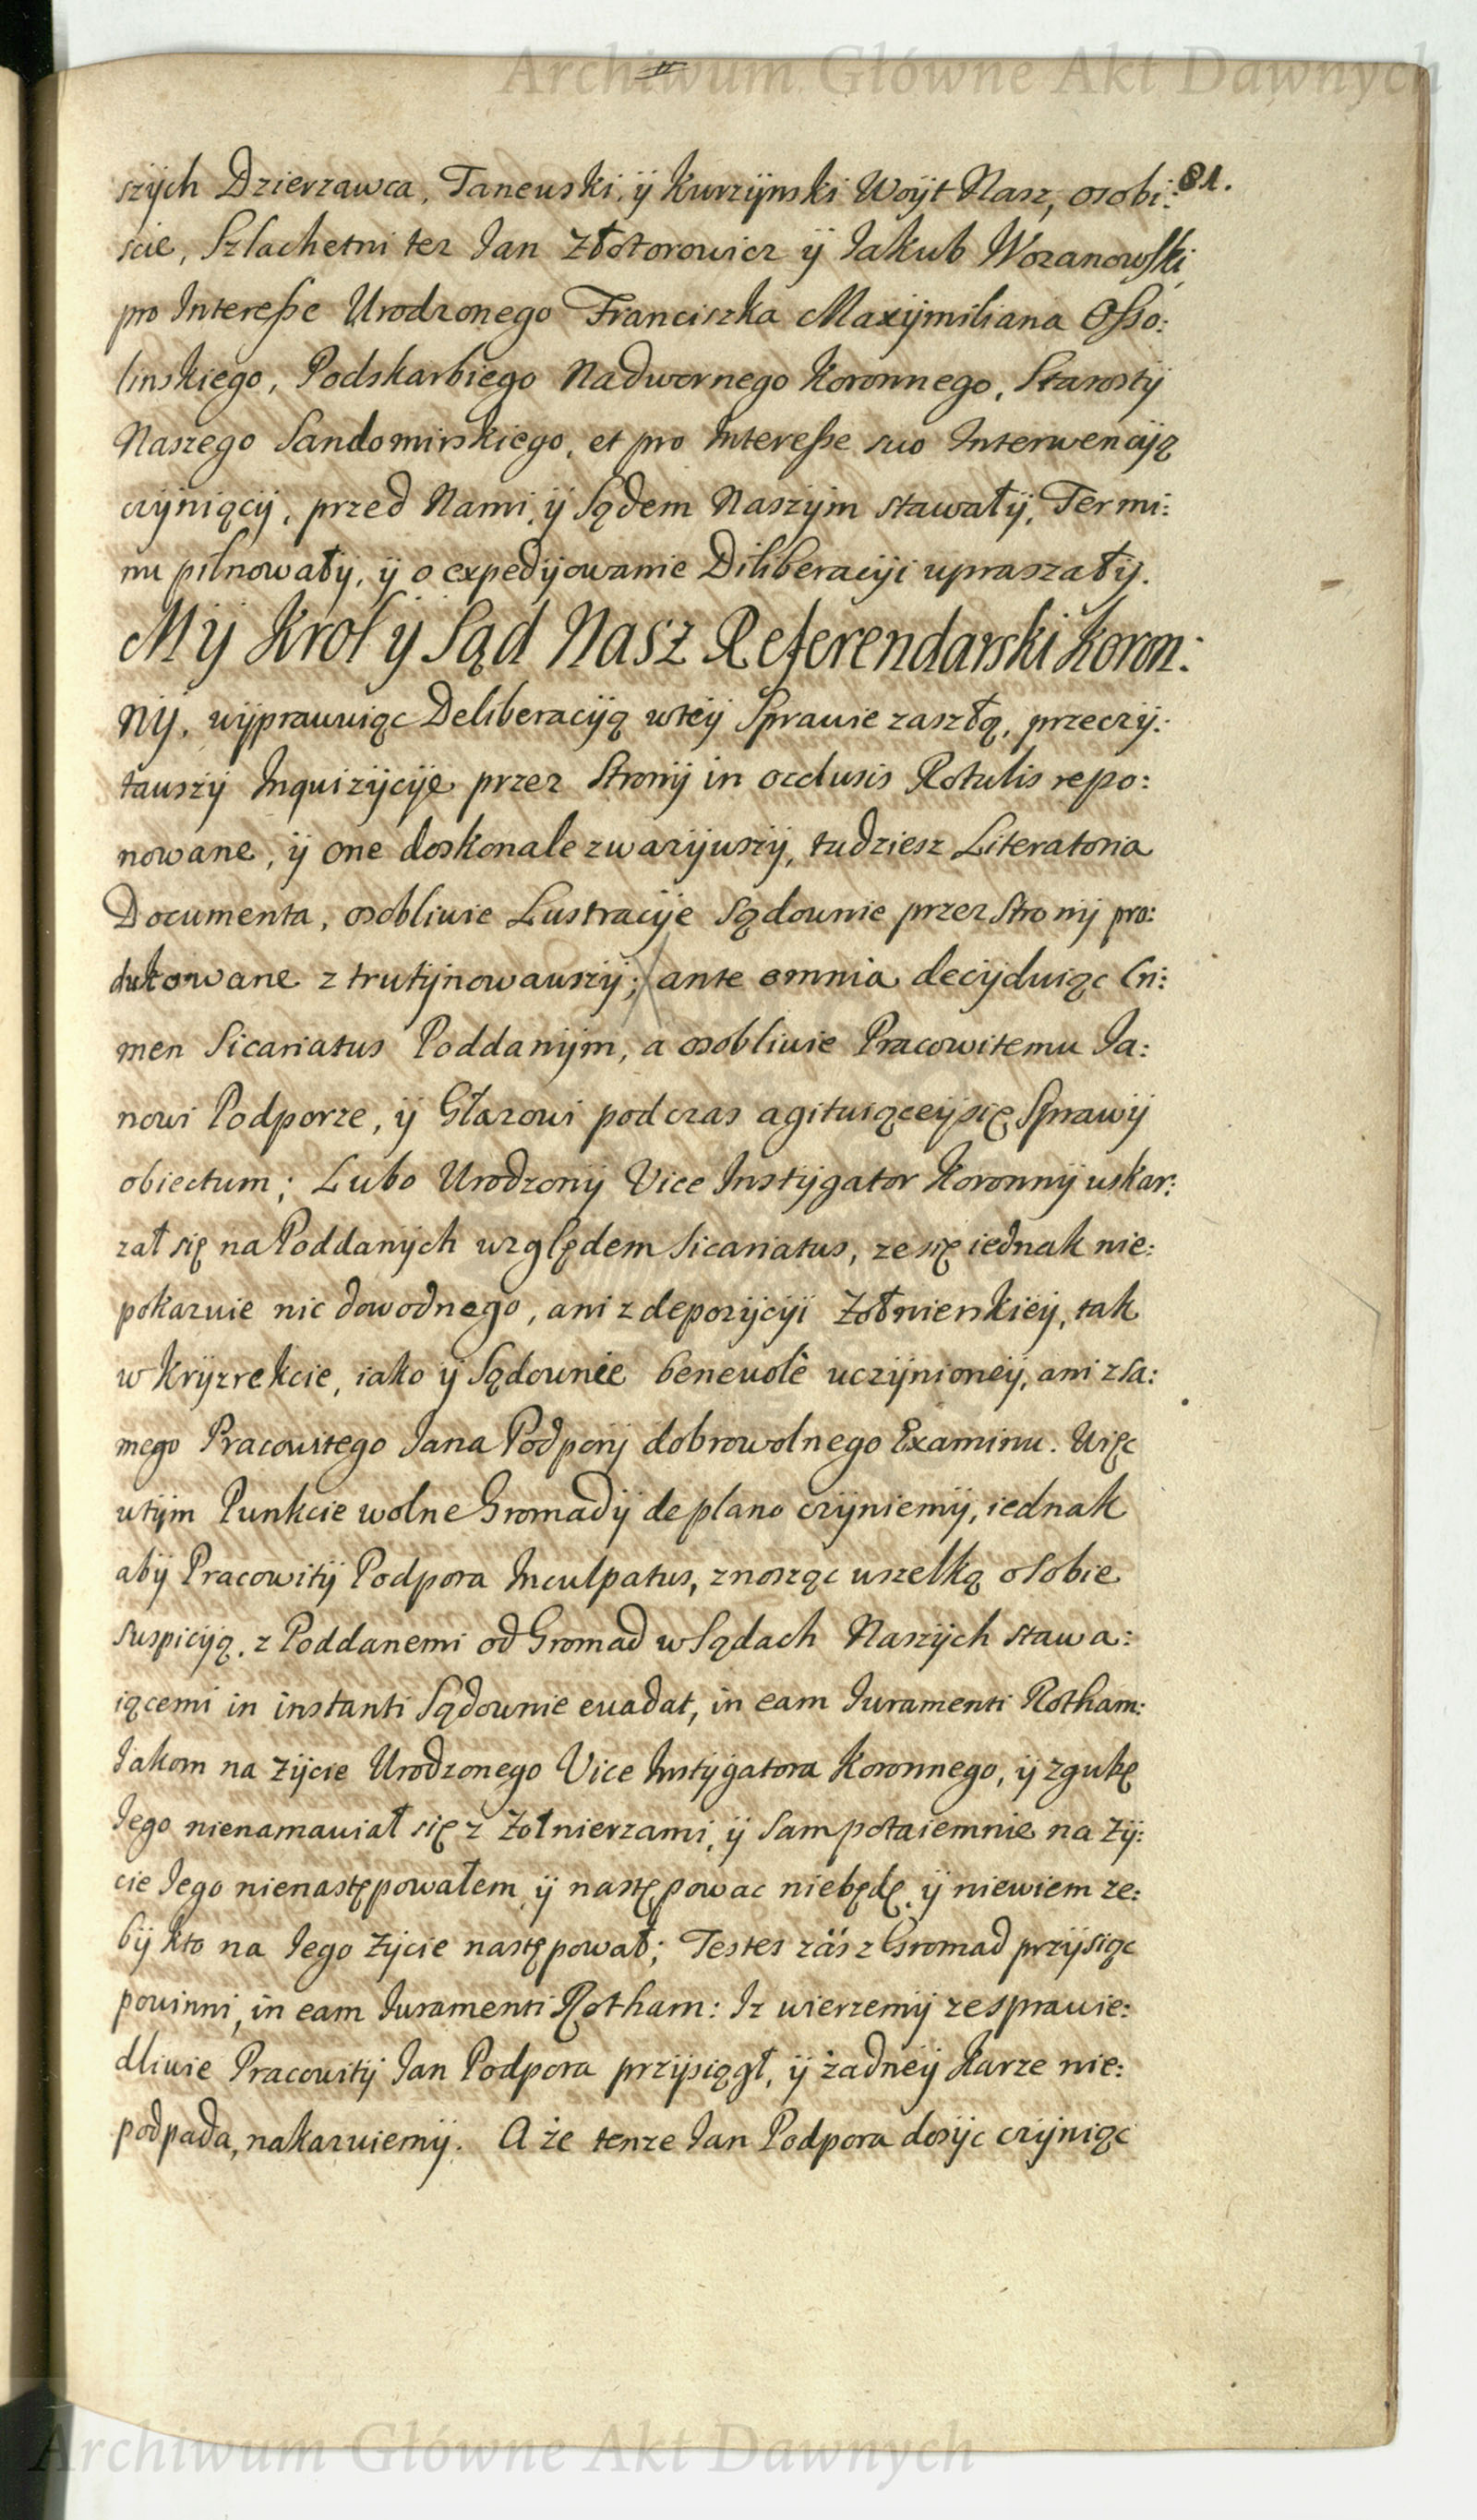 Archiwum Główne Akt Dawnych
81.
szÿch Dzierzawca, Taneuski, ÿ Kurzÿnski Woÿt Nasz, osobi:
scie, Szlachetni tez Jan Złotorowicz ÿ Jakub Wozanowski
pro Interesse Urodzonego Franciszka Maxÿmiliana Osso:
linskiego, Podskarbiego Nadwornego Koronnego, Starostÿ
Naszego Sandomirskiego, et pro Interesse suo Interwencÿą
czÿniącÿ, przed Nami, ÿ Sądem Naszÿm stawałÿ, Termi:
nu pilnowałÿ, ÿ o expedÿowanie Diliberacÿi upraszałÿ.
Mÿ Krol ÿ Sąd Nasz Referendarski Koron:
nÿ, wÿprawuiąc Deliberacÿą wteÿ Sprawie zaszłą, przeczÿ:
tauszÿ Inquizÿcÿe przez Stronÿ in occlusis Rotulis repo:
nowane, ÿ one doskonale zwazÿwszÿ, tudziesz Literatoria
Documenta, osobliwie Lustracÿe Sądownie przez Stronÿ pro:
dukowane ztrutÿnowauszÿ; ante omnia decÿduiąc Cri:
men Sicariatus Poddanÿm, a osobliwie Pracowitemu Ja:
nowi Podporze, ÿ Głazowi podczas agituiąceÿ się Sprawÿ
obiectum; Lubo Urodzonÿ Vice Instÿgator Koronnÿ uskar:
zał się na Poddanÿch względem Sicariatus, ze się iednak nie:
pokazuie nic dowodnego, ani z depozÿcÿi Zołnierskieÿ, tak
w Krÿzrekcie, iako ÿ Sądownie benevolè uczÿnioneÿ, ani z Sa:
mego Pracowitego Jana Podporÿ dobrowolnego Examinu. Więc
wtÿm Punkcie wolne Gromadÿ de plano czÿniemÿ, iednak
abÿ Pracowitÿ Podpora Inculpatus, znosząc wszelką o Sobie
Suspicÿą, z Poddanemi od Gromad w Sądach Naszÿch stawa:
iącemi in instanti Sądownie evadat, in eam Juramenti Rotham:
Jakom na zÿcie Urodzonego Vice Instÿgatora Koronnego, ÿ zgubę
Jego nienamawiał się z Zołnierzami, ÿ Sam potaiemnie na Zÿ:
cie Jego nienastępowałem ÿ następowac niebędę, ÿ niewiem ze:
bÿ kto na Jego zÿcie następował; Testes zás z Gromad przÿsiąc
powinni, in eam Juramenti Rotham: Iz wierzemÿ ze sprawie:
dliwie Pracowitÿ Jan Podpora przÿsiągł, ÿ żadneÿ Karze nie:
podpada, nakazuiemÿ. A że tenze Jan Podpora dosÿc czÿniąc
Archiwum Główne Akt Dawnych